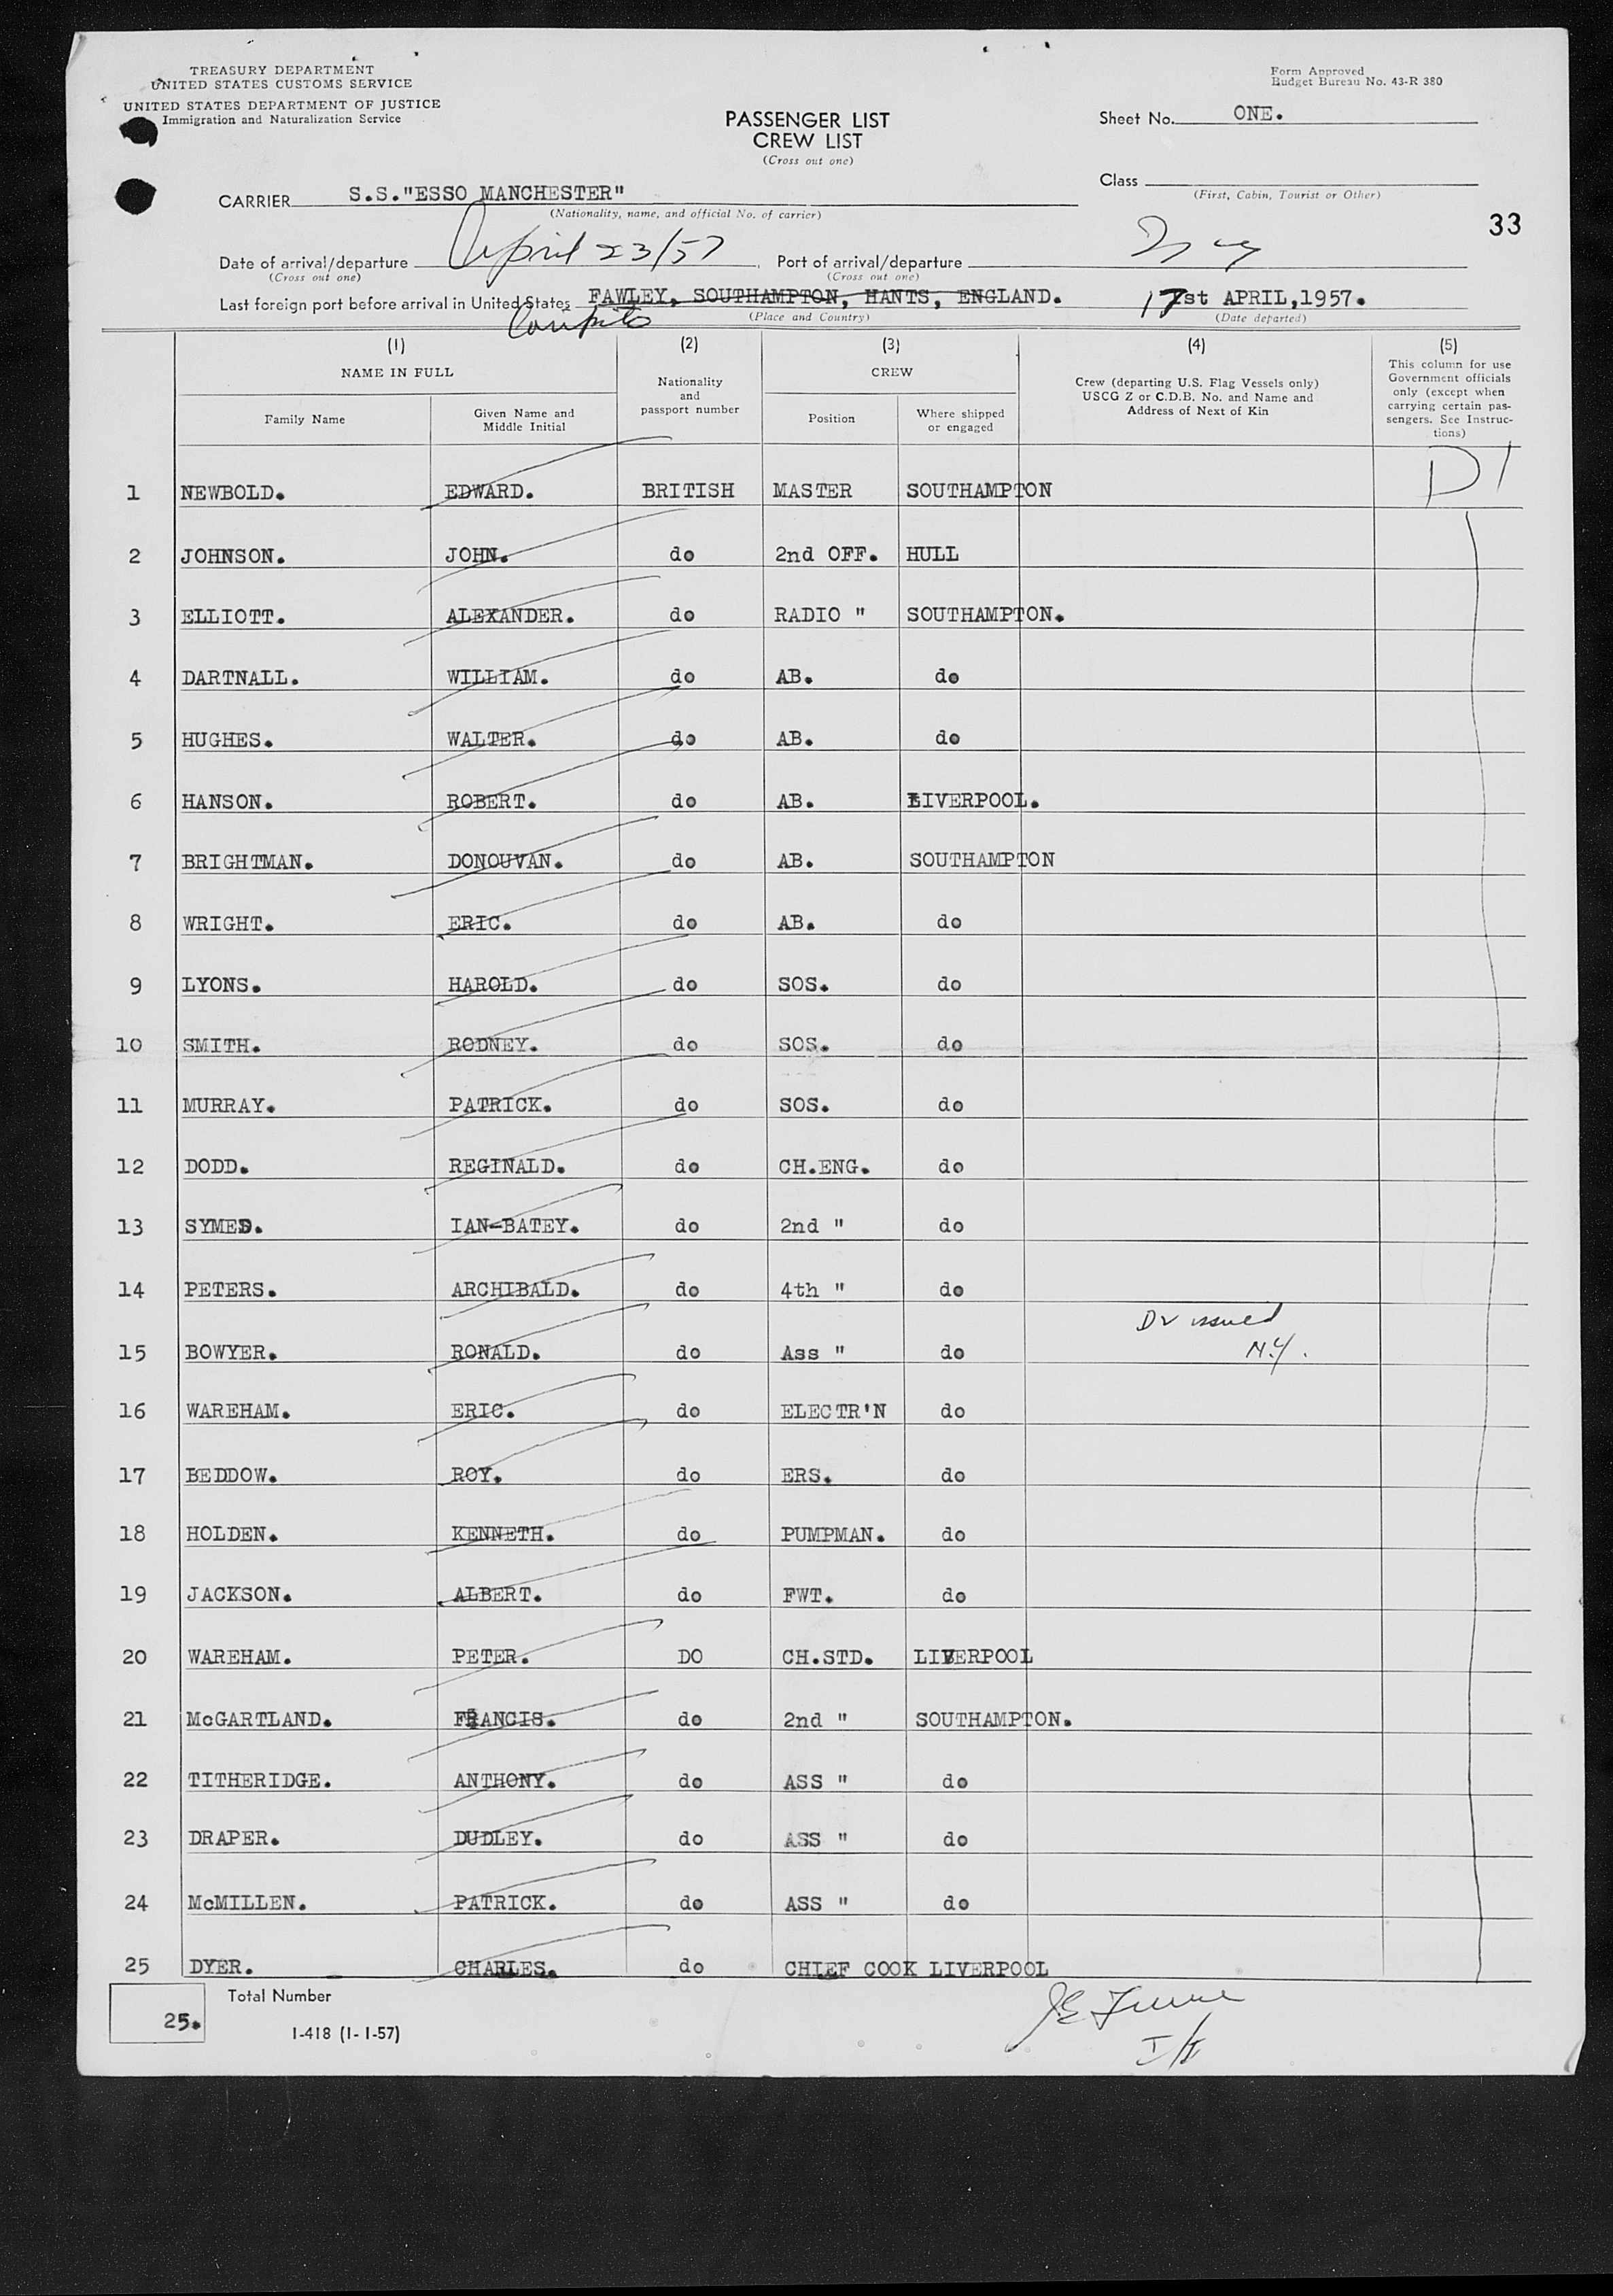 TREASURY DEPARTMENT
UNITED STATES CUSTOMS SERVICE
UNITED STATES DEPARTMENT OF JUSTICE
Immigration and Naturalization Service
Form Approved
Budget Bureau No. 43-R 380
PASSENGER LIST
CREW LIST
(Cross out one)
Sheet No. ONE.
Class
(First, Cabin, Tourist or Other)
CARRIER S.S."ESSO MANCHESTER"
(Nationality, name, and official No. of carrier)
33
Date of arrival/departure April 23/57 Port of arrival/departure
(Cross out one) (Cross out one)
Last foreign port before arrival in United States FAWLEY, SOUTHAMPTON, HANTS, ENGLAND. 17st APRIL, 1957.
(Place and Country) (Date departed)
(1) (2) (3) (4) (5)
NAME IN FULL
Family Name
Given Name and
Middle Initial
Nationality
and
passport number
CREW
Position
Where shipped
or engaged
Crew (departing U.S. Flag Vessels only)
USCG Z or C.D.B. No. and Name and
Address of Next of Kin
This column for use
Government officials
only (except when
carrying certain pas-
sengers. See Instruc-
tions)
1 NEWBOLD. EDWARD. BRITISH MASTER SOUTHAMPTON D1
2 JOHNSON. JOHN. do 2nd OFF. HULL
3 ELLIOTT. ALEXANDER. do RADIO " SOUTHAMPTON.
4 DARTNALL. WILLIAM. do AB. do
5 HUGHES. WALTER. do AB. do
6 HANSON. ROBERT. do AB. LIVERPOOL.
7 BRIGHTMAN. DONOUVAN. do AB. SOUTHAMPTON
8 WRIGHT. ERIC. do AB. do
9 LYONS. HAROLD. do SOS. do
10 SMITH. RODNEY. do SOS. do
11 MURRAY. PATRICK. do SOS. do
12 DODD. REGINALD. do CH.ENG. do
13 SYMES. IAN-BATEY. do 2nd " do
14 PETERS. ARCHIBALD. do 4th " do
D2 issued
15 BOWYER. RONALD. do Ass " do N.Y.
16 WAREHAM. ERIC. do ELECTR'N do
17 BEDDOW. ROY. do ERS. do
18 HOLDEN. KENNETH. do PUMPMAN. do
19 JACKSON. ALBERT. do FWT. do
20 WAREHAM. PETER. DO CH.STD. LIVERPOOL
21 McGARTLAND. FRANCIS. do 2nd " SOUTHAMPTON.
22 TITHERIDGE. ANTHONY. do ASS " do
23 DRAPER. DUDLEY. do ASS " do
24 McMILLEN. PATRICK. do ASS " do
25 DYER. CHARLES. do CHIEF COOK LIVERPOOL
25. Total Number
I-418 (1-1-57)